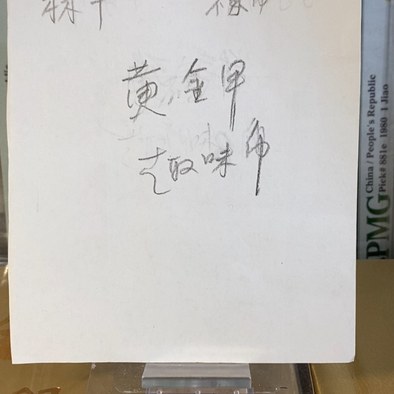 黄金甲
趣味币
China / People's Republic
Pick# 881e 1980 1 Jiao
PMG